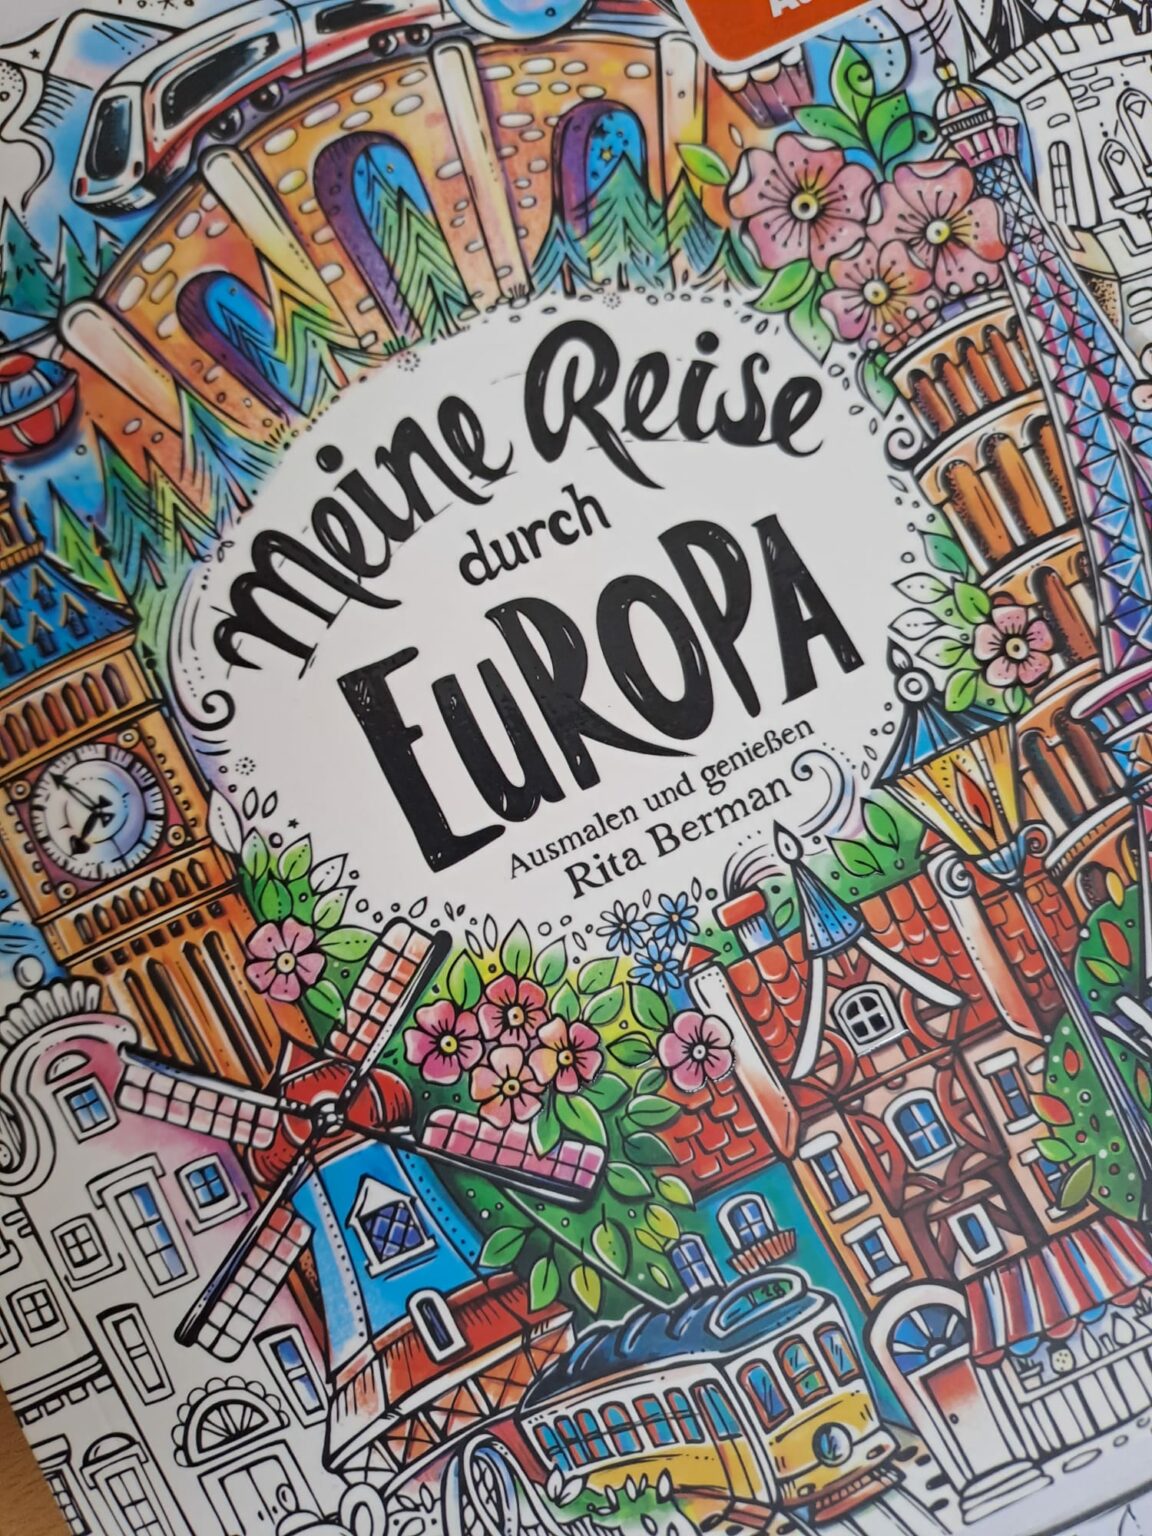 Meine Reise
durch
EuROPA
Ausmalen und genießen
Rita Berman
28